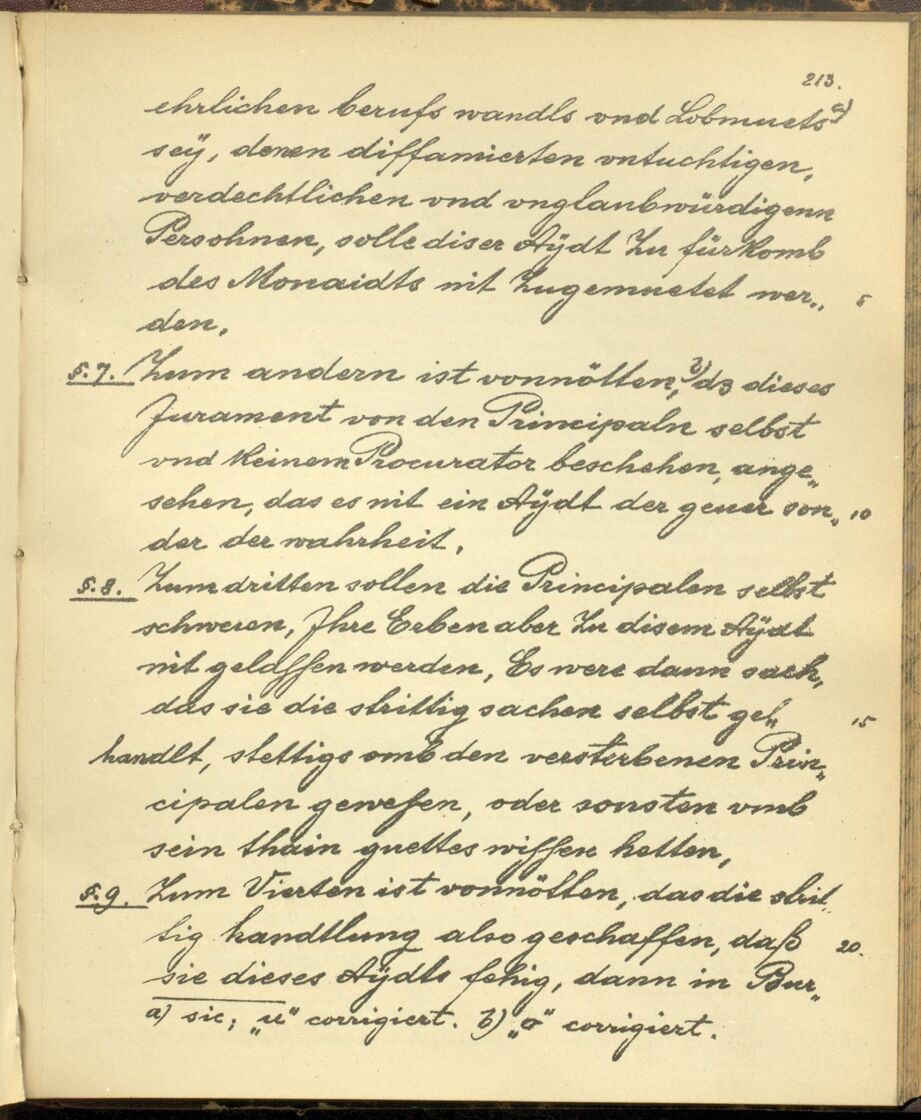 213.
ehrlichen berufs wandls vnd Lobmuets a)
seÿ, denen diffamierten vntuchtigen,
verdechtlichen vnd vnglaubwürdigenn
Persohnen, solle diser Aÿdt Zu fürkomb
des Monaidts nit Zugemuetet wer„ 5
den,
§.7. Zum andern ist vonnötten, b) dz dieses
Jurament von den Principaln selbst
vnd keinem Procurator beschehen, ange„
sehen, das es nit ein Aÿdt der geuer son„ 10
der der wahrheit,
§.8. Zum dritten sollen die Principalen selbst
schweren, Jhre Erben aber Zu disem Aÿdt
nit gelassen werden, Es were dann sach,
das sie die strittig sachen selbst ge„ 15
handlt, stettigs omb den versterbenen Prin„
cipalen gewesen, oder sonsten vmb
sein thain guettes wissen hetten,
§.9. Zum Vierten ist vonnötten, das die strit„
tig handtlung also geschaffen, daß 20.
sie dieses Aÿdts fehig, dann in Bur„
a) sic; „u" corrigiert. b) „o" corrigiert.